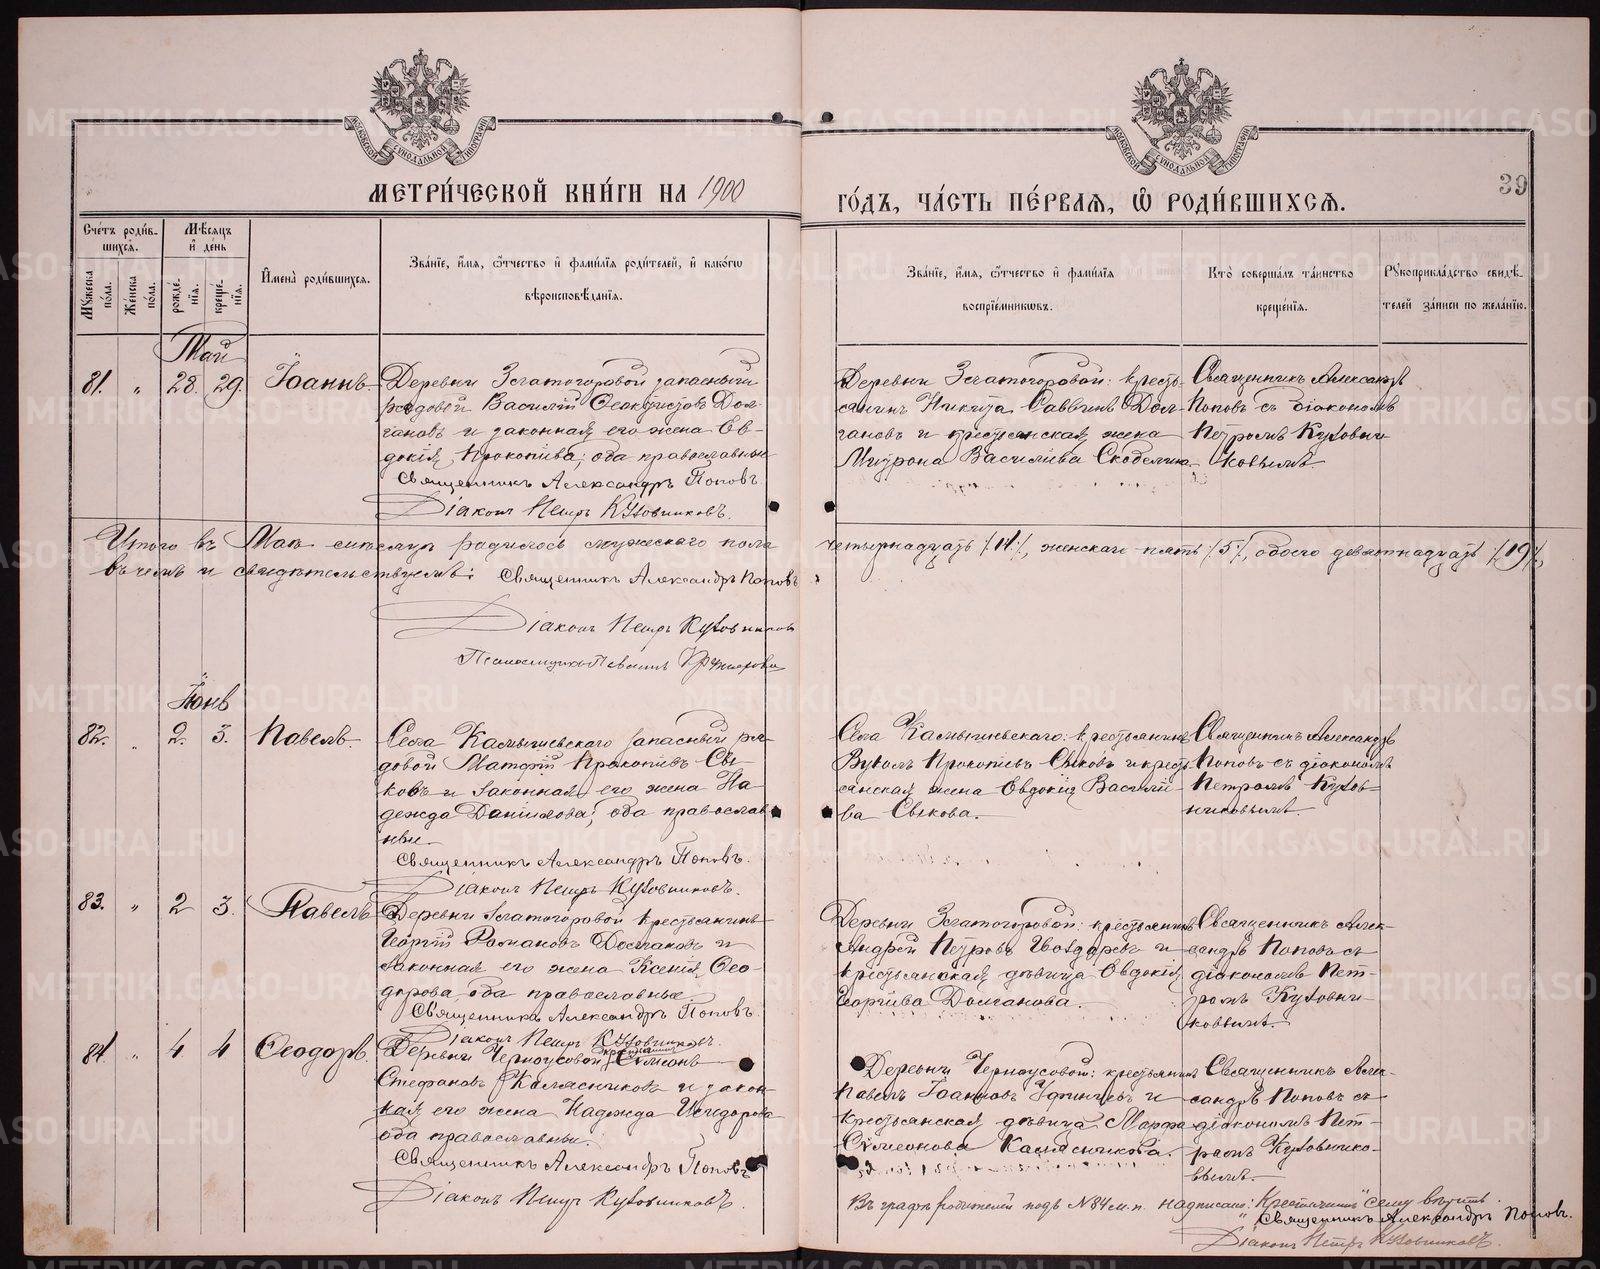 МЕТРИ́ЧЕСКОЙ КНИ́ГИ НА 1900
ГО́ДЪ, ЧА́СТЬ ПЕ́РВАЯ, Ѿ РОДИ́ВШИХСѦ.
39
Сче́тъ роди́в-
шихсѧ.
Мѣсяцъ
и де́нь
Мꙋжеска по́ла.
Же́нска по́ла.
рожде́нїѧ.
креще́нїѧ.
И̓мена̀ роди́вшихсѧ.
Зва́нїе, и́мѧ, ѻ́тчество и фами́лїѧ роди́телей, и како́гѡ
вѣроисповѣ́данїѧ.
Зва́нїе, и́мѧ, ѻ́тчество и фами́лїѧ
воспрїе́мникѡвъ.
Кто̀ соверша́лъ та́инство
креще́нїѧ.
Рꙋкоприкла́дство свидѣ́-
телей за́писи по жела́нїю.
Май
81. „ 28. 29. Іоаннъ
Деревни Золотогоровой запасный
рядовой Василій Ѳеоктистовъ Дол-
гановъ и законная его жена Ев-
докія Прокопіева; оба православны
Священникъ Александръ Поповъ.
Діаконъ Петръ Кузовниковъ.
Деревни Золотогоровой: кресть-
янинъ Никита Саввинъ Дол-
гановъ и крестьянская жена
Матрона Василіева
Священникъ Александръ
Поповъ съ діакономъ
Петромъ Кузовни-
ковымъ.
Итого въ Маѣ мѣсяцѣ родилось мужескаго пола четырнадцать /14/, женскаго пять /5/, обоего девятнадцать /19/,
въ чемъ и свидѣтельствуемъ: Священникъ Александръ Поповъ
Діаконъ Петръ Кузовниковъ
Псаломщикъ
Іюнь
82. „ 2. 3. Павелъ.
Села Камышевскаго запасный ря-
довой Матѳій Прокопіевъ Сы-
ковъ и законная его жена На-
дежда Даніилова; оба православ-
ны.
Священникъ Александръ Поповъ.
Діаконъ Петръ Кузовниковъ.
Села Камышевскаго: крестьянинъ
Вуколъ Прокопіевъ Сыковъ и кресть-
янская жена Евдокія Василіе-
ва Сыкова.
Священникъ Александръ
Поповъ съ діакономъ
Петромъ Кузов-
никовымъ.
83. „ 2 3. Павелъ
Деревни Золотогоровой крестьянинъ
Георгій Романовъ Долгановъ и
законная его жена Ксенія Ѳео-
дорова, оба православные.
Священникъ Александръ Поповъ.
Діаконъ Петръ Кузовниковъ.
Деревни Золотогоровой: крестьянинъ
Андрей Петровъ Гвоздаревъ и
крестьянская дѣвица Евдокія
Георгіева Долганова.
Священникъ Алек-
сандръ Поповъ съ
діакономъ Пет-
ромъ Кузовни-
ковымъ.
84. „ 4 4 Ѳеодоръ.
крестьянинъ
Деревни Черноусовой Сѵмеонъ
Стефановъ Колясниковъ и закон-
ная его жена Надежда Исидорова
оба православны.
Священникъ Александръ Поповъ
Діаконъ Петръ Кузовниковъ.
Деревни Черноусовой: крестьянинъ
Павелъ Іоанновъ и
крестьянская дѣвица Марфа
Сѵмеонова Колясникова.
Священникъ Алек-
сандръ Поповъ съ
діакономъ Пет-
ромъ Кузовнико-
вымъ.
Въ графѣ родителей подъ №84 м.п. надписано: „крестьянинъ" сему вѣрить.
Священникъ Александръ Поповъ.
Діаконъ Петръ Кузовниковъ.
METRIKI.GASO-URAL.RU